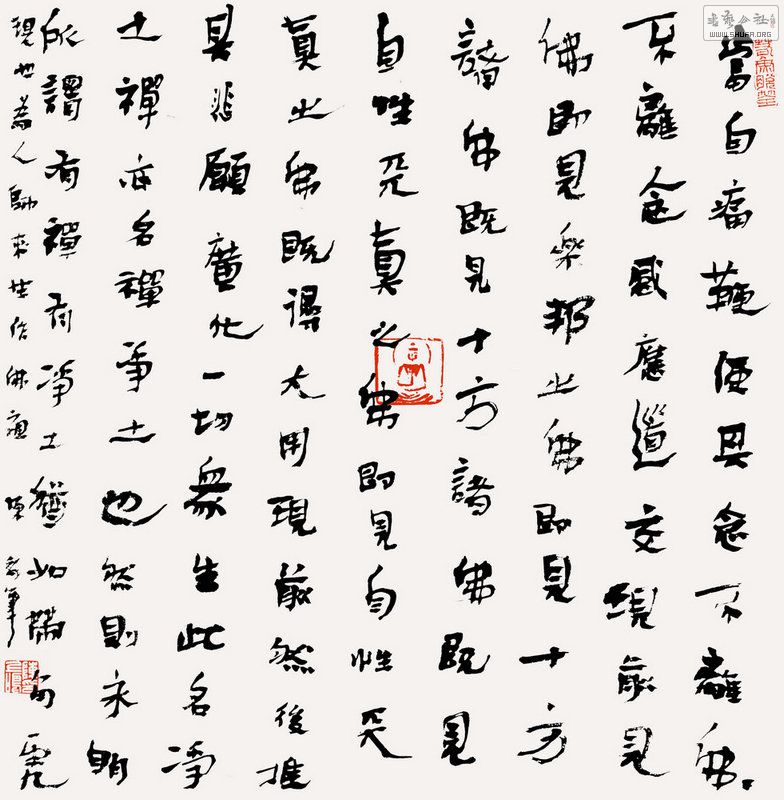 當自痛鞭使其念不離佛〻
不離念感應道交現前見
佛即見樂邦之佛即見十方
諸佛既見十方諸佛既見
自性天真之佛即見自性天
真之佛既得大用現前然後推
其悲願廣化一切眾生此名淨
土禪亦名禪淨土也然則永明
所謂有禪有淨土猶如帶角虎
現世為人師來生作佛祖 陳
WWW.SHUFA.ORG